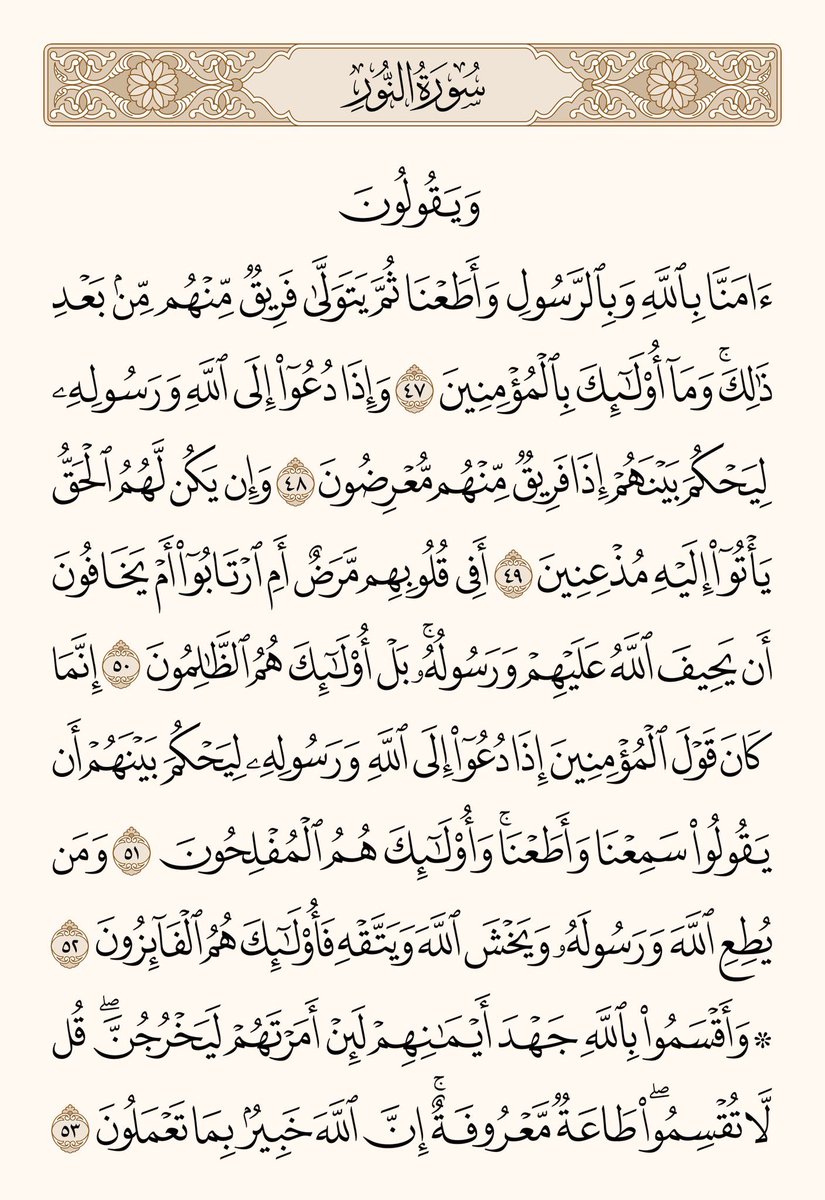 سُورَةُ النُّورِ
وَيَقُولُونَ
ءَامَنَّا بِٱللَّهِ وَبِٱلرَّسُولِ وَأَطَعۡنَا ثُمَّ يَتَوَلَّىٰ فَرِيقٞ مِّنۡهُم مِّنۢ بَعۡدِ
ذَٰلِكَۚ وَمَآ أُوْلَٰٓئِكَ بِٱلۡمُؤۡمِنِينَ ٤٧ وَإِذَا دُعُوٓاْ إِلَى ٱللَّهِ وَرَسُولِهِۦ
لِيَحۡكُمَ بَيۡنَهُمۡ إِذَا فَرِيقٞ مِّنۡهُم مُّعۡرِضُونَ ٤٨ وَإِن يَكُن لَّهُمُ ٱلۡحَقُّ
يَأۡتُوٓاْ إِلَيۡهِ مُذۡعِنِينَ ٤٩ أَفِي قُلُوبِهِم مَّرَضٌ أَمِ ٱرۡتَابُوٓاْ أَمۡ يَخَافُونَ
أَن يَحِيفَ ٱللَّهُ عَلَيۡهِمۡ وَرَسُولُهُۥۚ بَلۡ أُوْلَٰٓئِكَ هُمُ ٱلظَّٰلِمُونَ ٥٠ إِنَّمَا
كَانَ قَوۡلَ ٱلۡمُؤۡمِنِينَ إِذَا دُعُوٓاْ إِلَى ٱللَّهِ وَرَسُولِهِۦ لِيَحۡكُمَ بَيۡنَهُمۡ أَن
يَقُولُواْ سَمِعۡنَا وَأَطَعۡنَاۚ وَأُوْلَٰٓئِكَ هُمُ ٱلۡمُفۡلِحُونَ ٥١ وَمَن
يُطِعِ ٱللَّهَ وَرَسُولَهُۥ وَيَخۡشَ ٱللَّهَ وَيَتَّقۡهِ فَأُوْلَٰٓئِكَ هُمُ ٱلۡفَآئِزُونَ ٥٢
۞ وَأَقۡسَمُواْ بِٱللَّهِ جَهۡدَ أَيۡمَٰنِهِمۡ لَئِنۡ أَمَرۡتَهُمۡ لَيَخۡرُجُنَّۖ قُل
لَّا تُقۡسِمُواْۖ طَاعَةٞ مَّعۡرُوفَةٌۚ إِنَّ ٱللَّهَ خَبِيرُۢ بِمَا تَعۡمَلُونَ ٥٣